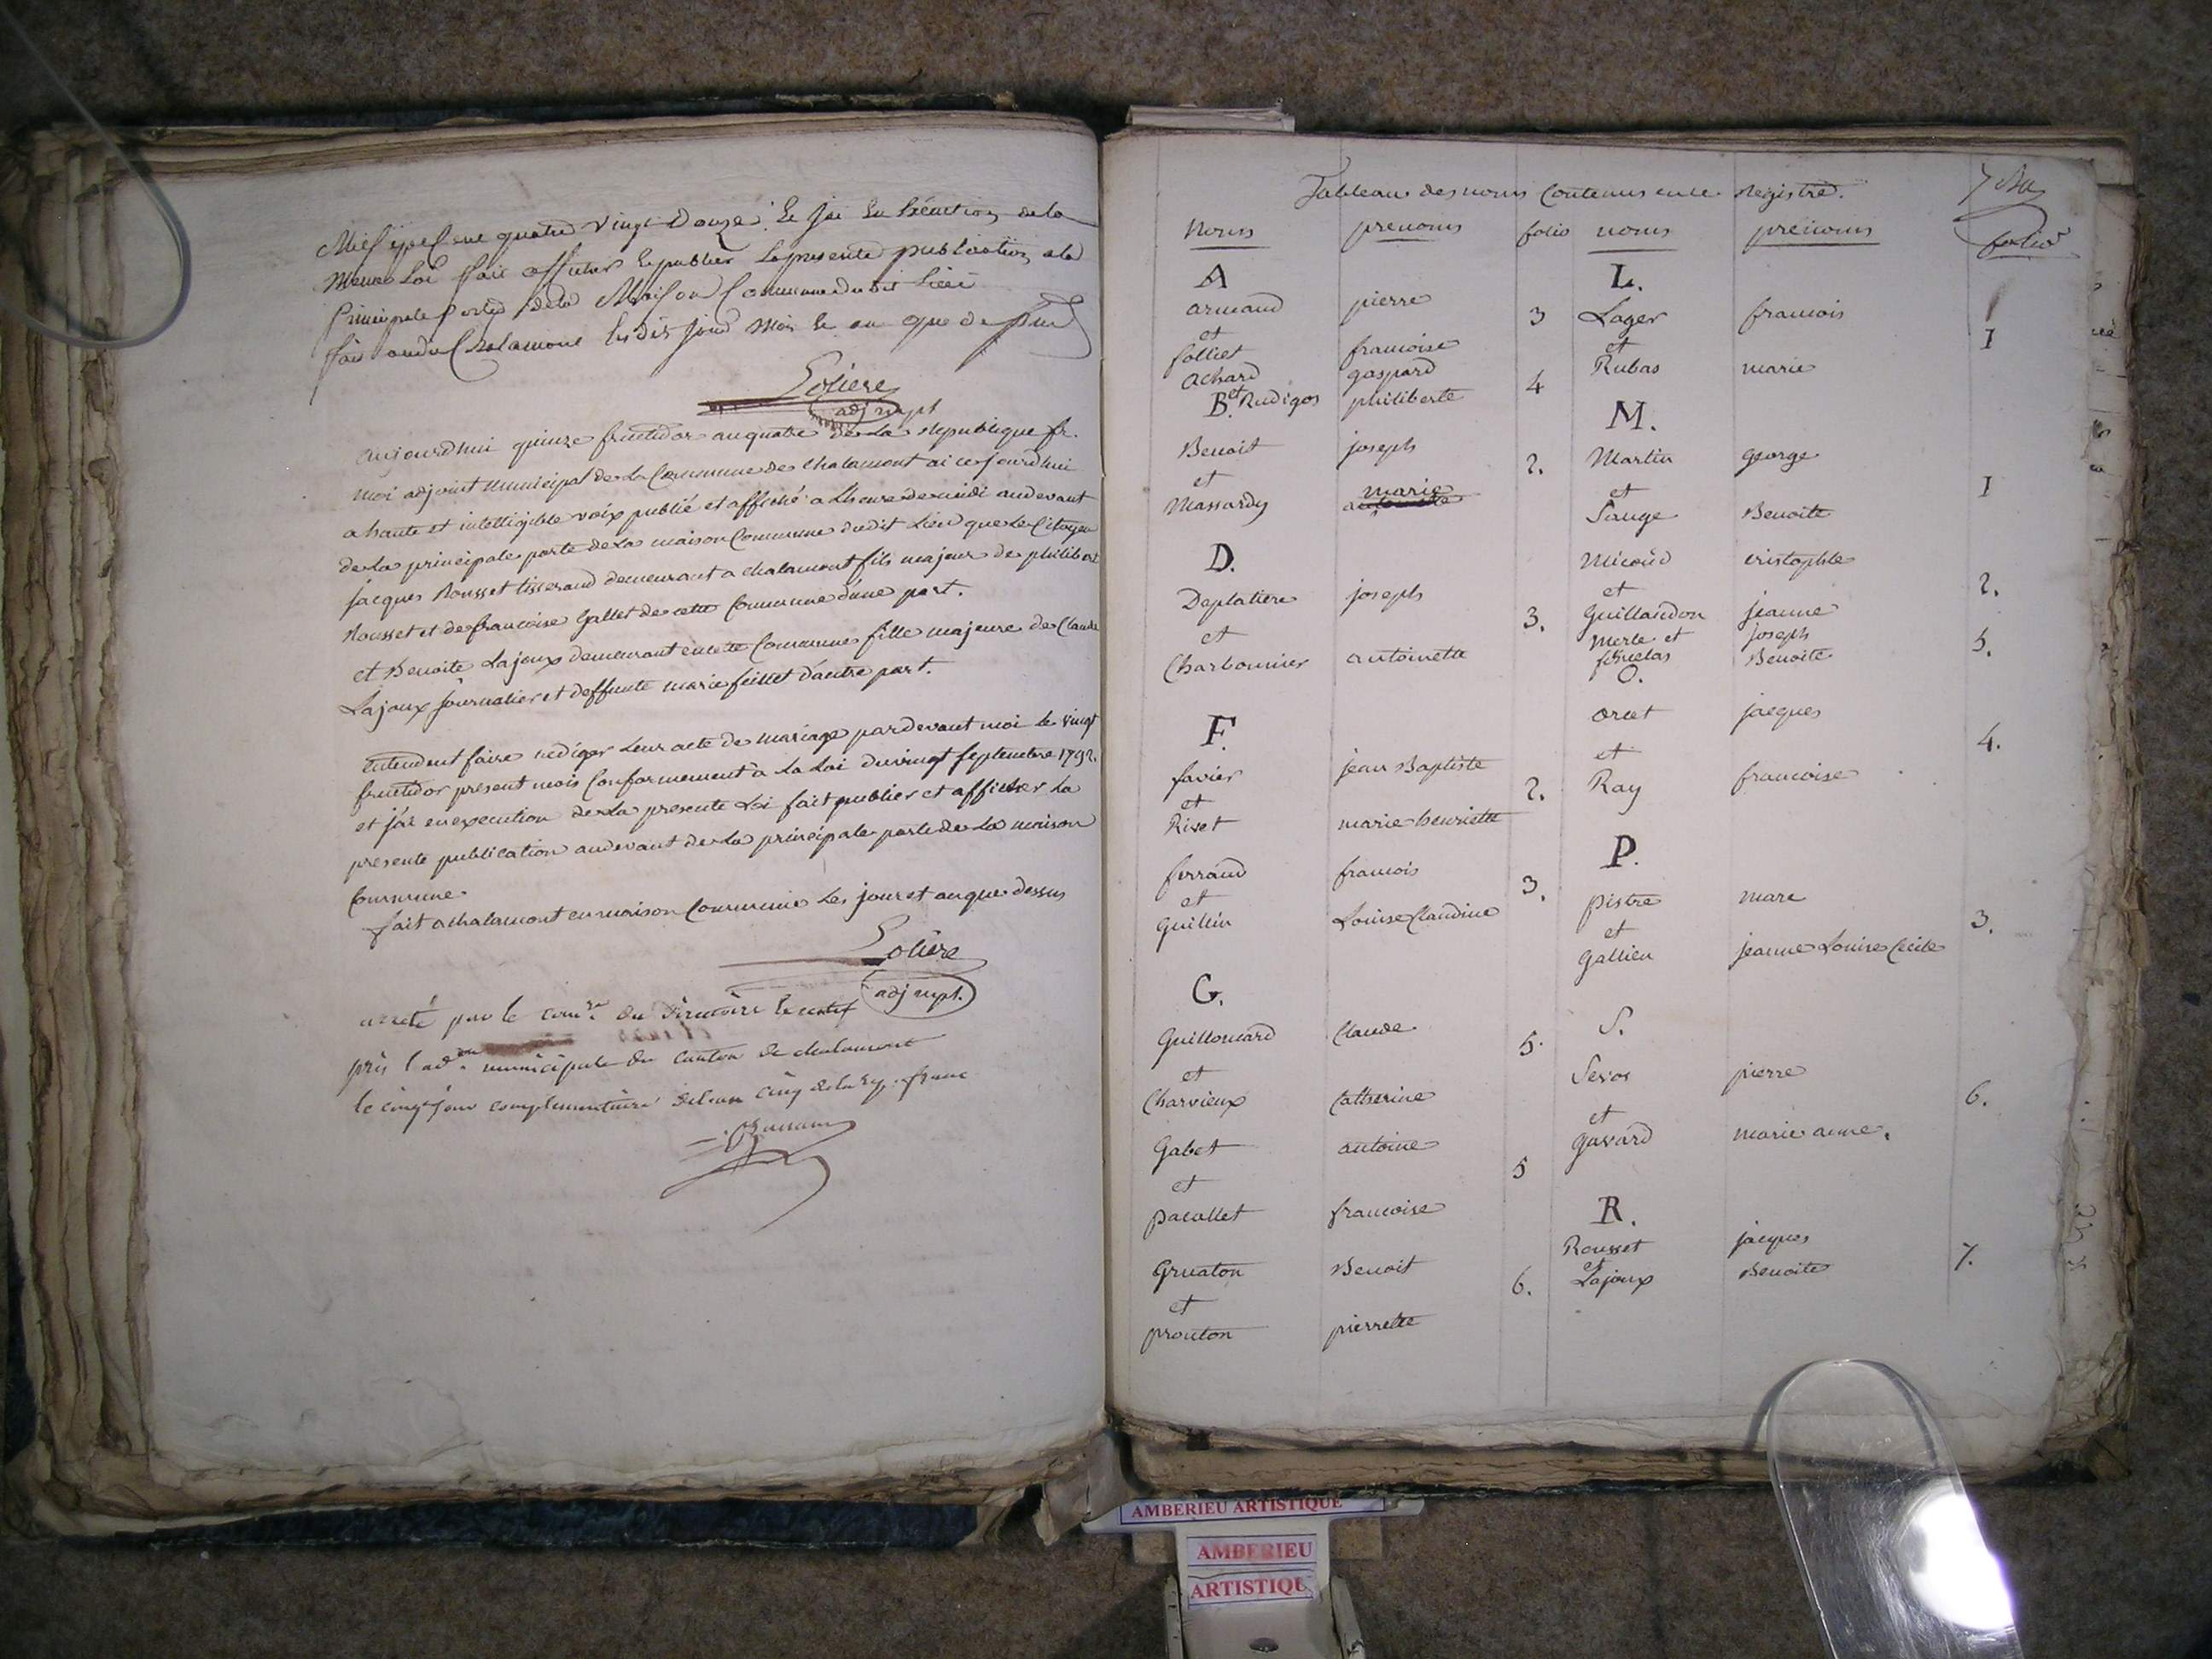 Mil sept cent quatre vingt Douze. Et j'ai en Exécution de la
meme Loi fait afficher et publier la presente publication a la
principale porte de la Maison Commune dudit Lieu
fait audit Chalamont les dit jour Mois et an que dessus
Loliere
adj mpl
aujourdhui quinze fructidor an quatre de La Republique fr.
moi adjoint municipal de La Commune de chalamont ai ce jourdhui
a haute et intelligible voix publié et affiché a L'heure de midi audevant
de La principale porte de La maison Commune dudit Lieu que Le Citoyen
jacques Rousset tisserand demeurant a chalamont fils majeur de philibert
Rousset et de francoise Gallet de cette Commune d'une part.
et Benoite Lajoux demeurant en cette Commune fille majeure de Claude
Lajoux journalier et deffunte marie feillet d'autre part.
entendent faire rediger Leur acte de mariage pardevant moi le vingt
fructidor present mois Conformement à La Loi du vingt septembre 1792.
et j'ai en execution de La presente Loi fait publier et afficher La
presente publication audevant de La principale porte de La maison
Commune.
fait a chalamont en maison Commune Les jour et an que dessus
Loliere
adj mpl.
arreté par le comre. du Directoire Executif
près l'adon. municipale du canton de chalamont
le cinqe. jour complementaire de l'an cinq de la rep. franc
Tableau des noms Contenus en ce Registre.
7
Noms prenoms folio noms prénoms folio
A L.
armand pierre 3 Lager francois
et et 1
folliet francoise Rubas marie
achard gaspard 4
et Rudigos philiberte
B. M.
Benoit joseph 2. Martin george
et et 1
Massardy marie Sauge Benoite
D. Micoud cristophle
et 2.
Deplatiere joseph 3. Guillaudon jeanne
et Merle et joseph 5.
Charbonnier antoinette Benoite
O.
F. orcet jacques
et 4.
favier jean Baptiste 2. Ray francoise
et
Rivet marie henriette
P.
ferrand francois 3. pistre marc
et et 3.
Guillin Louise Claudine Gallien jeanne Louise Cecile
G. S.
Guillomard Claude 5. Sevos pierre
et et 6.
Charvieux Catherine Gavard marie anne.
Gabet antoine 5
et R.
pacallet francoise Rousset jacques
et 7.
Gruaton Benoit 6. Lajoux Benoite
et
prouton pierrette
AMBERIEU ARTISTIQUE
AMBERIEU
ARTISTIQU